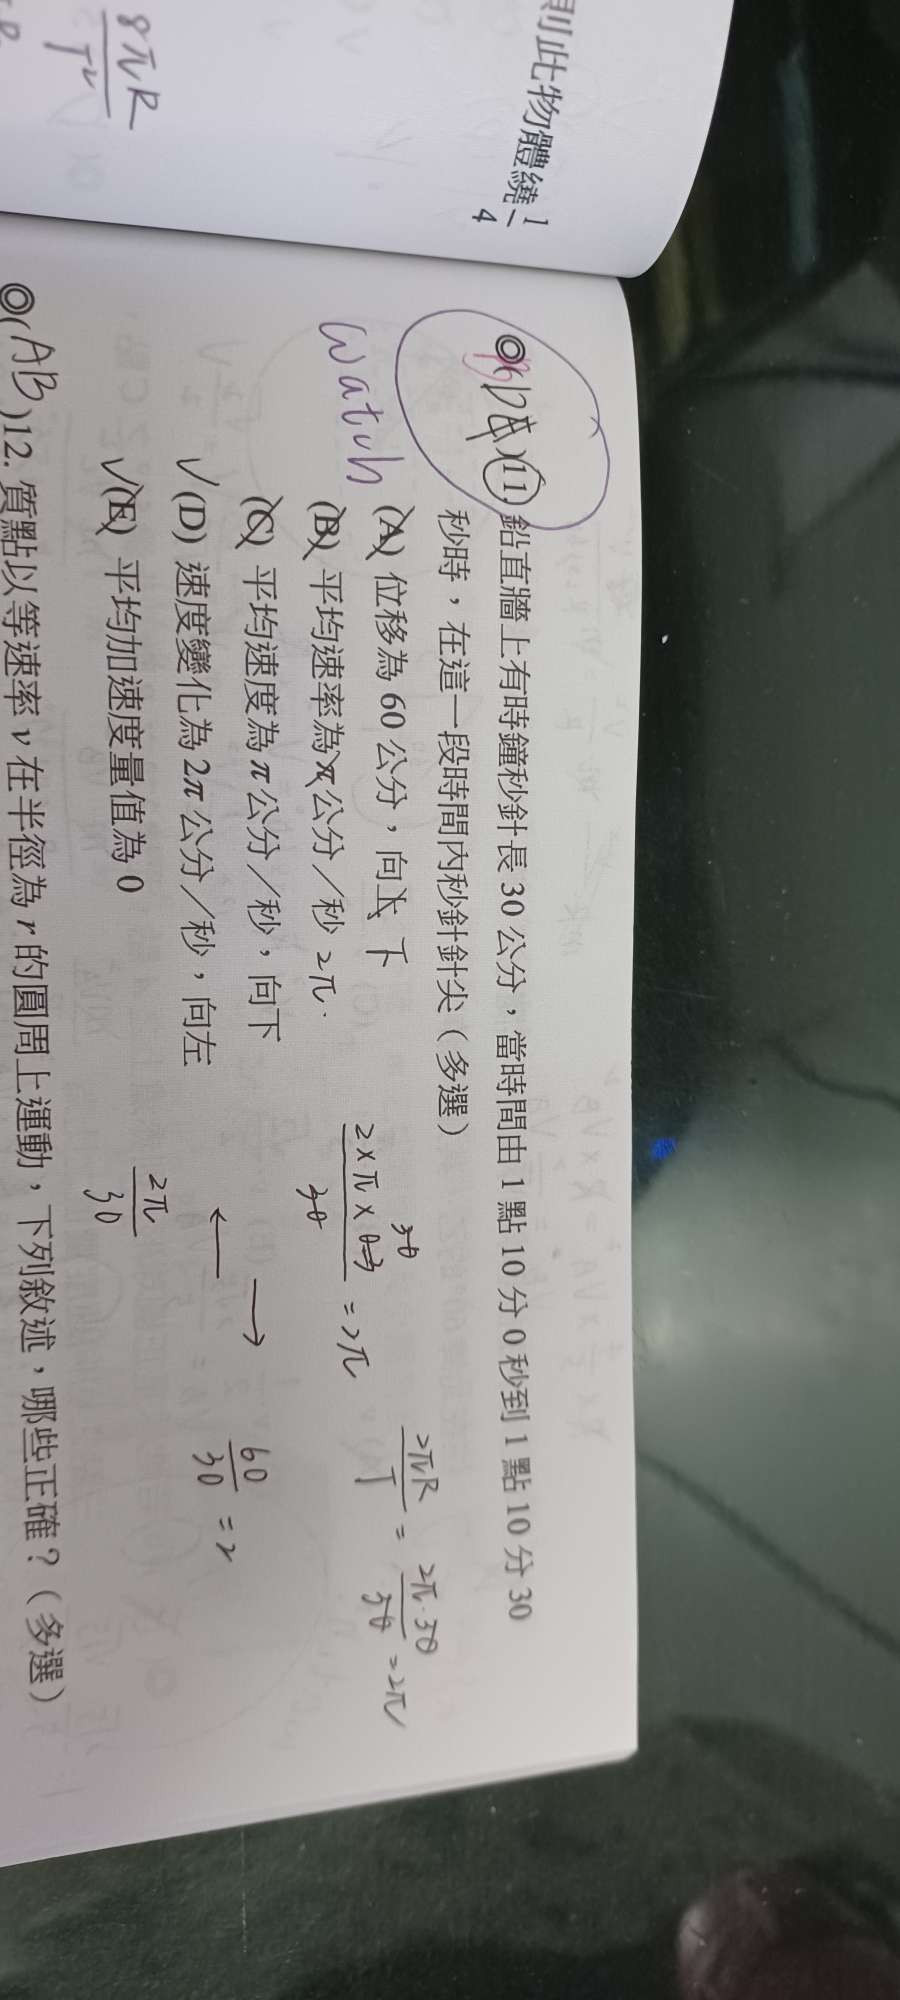 則此物體繞 1/4
8πR
T²
◎( )11. 鉛直牆上有時鐘秒針長 30 公分，當時間由 1 點 10 分 0 秒到 1 點 10 分 30
秒時，在這一段時間內秒針針尖（多選）
(A) 位移為 60 公分，向上 下
(B) 平均速率為 π 公分／秒 2π.
(C) 平均速度為 π 公分／秒，向下
✓ (D) 速度變化為 2π 公分／秒，向左
✓ (E) 平均加速度量值為 0
watch
2πR/T = 2π·30/30 = 2π
= 2π
← →
60/30 = 2
2π/30
◎(AB)12. 質點以等速率 v 在半徑為 r 的圓周上運動，下列敘述，哪些正確？（多選）